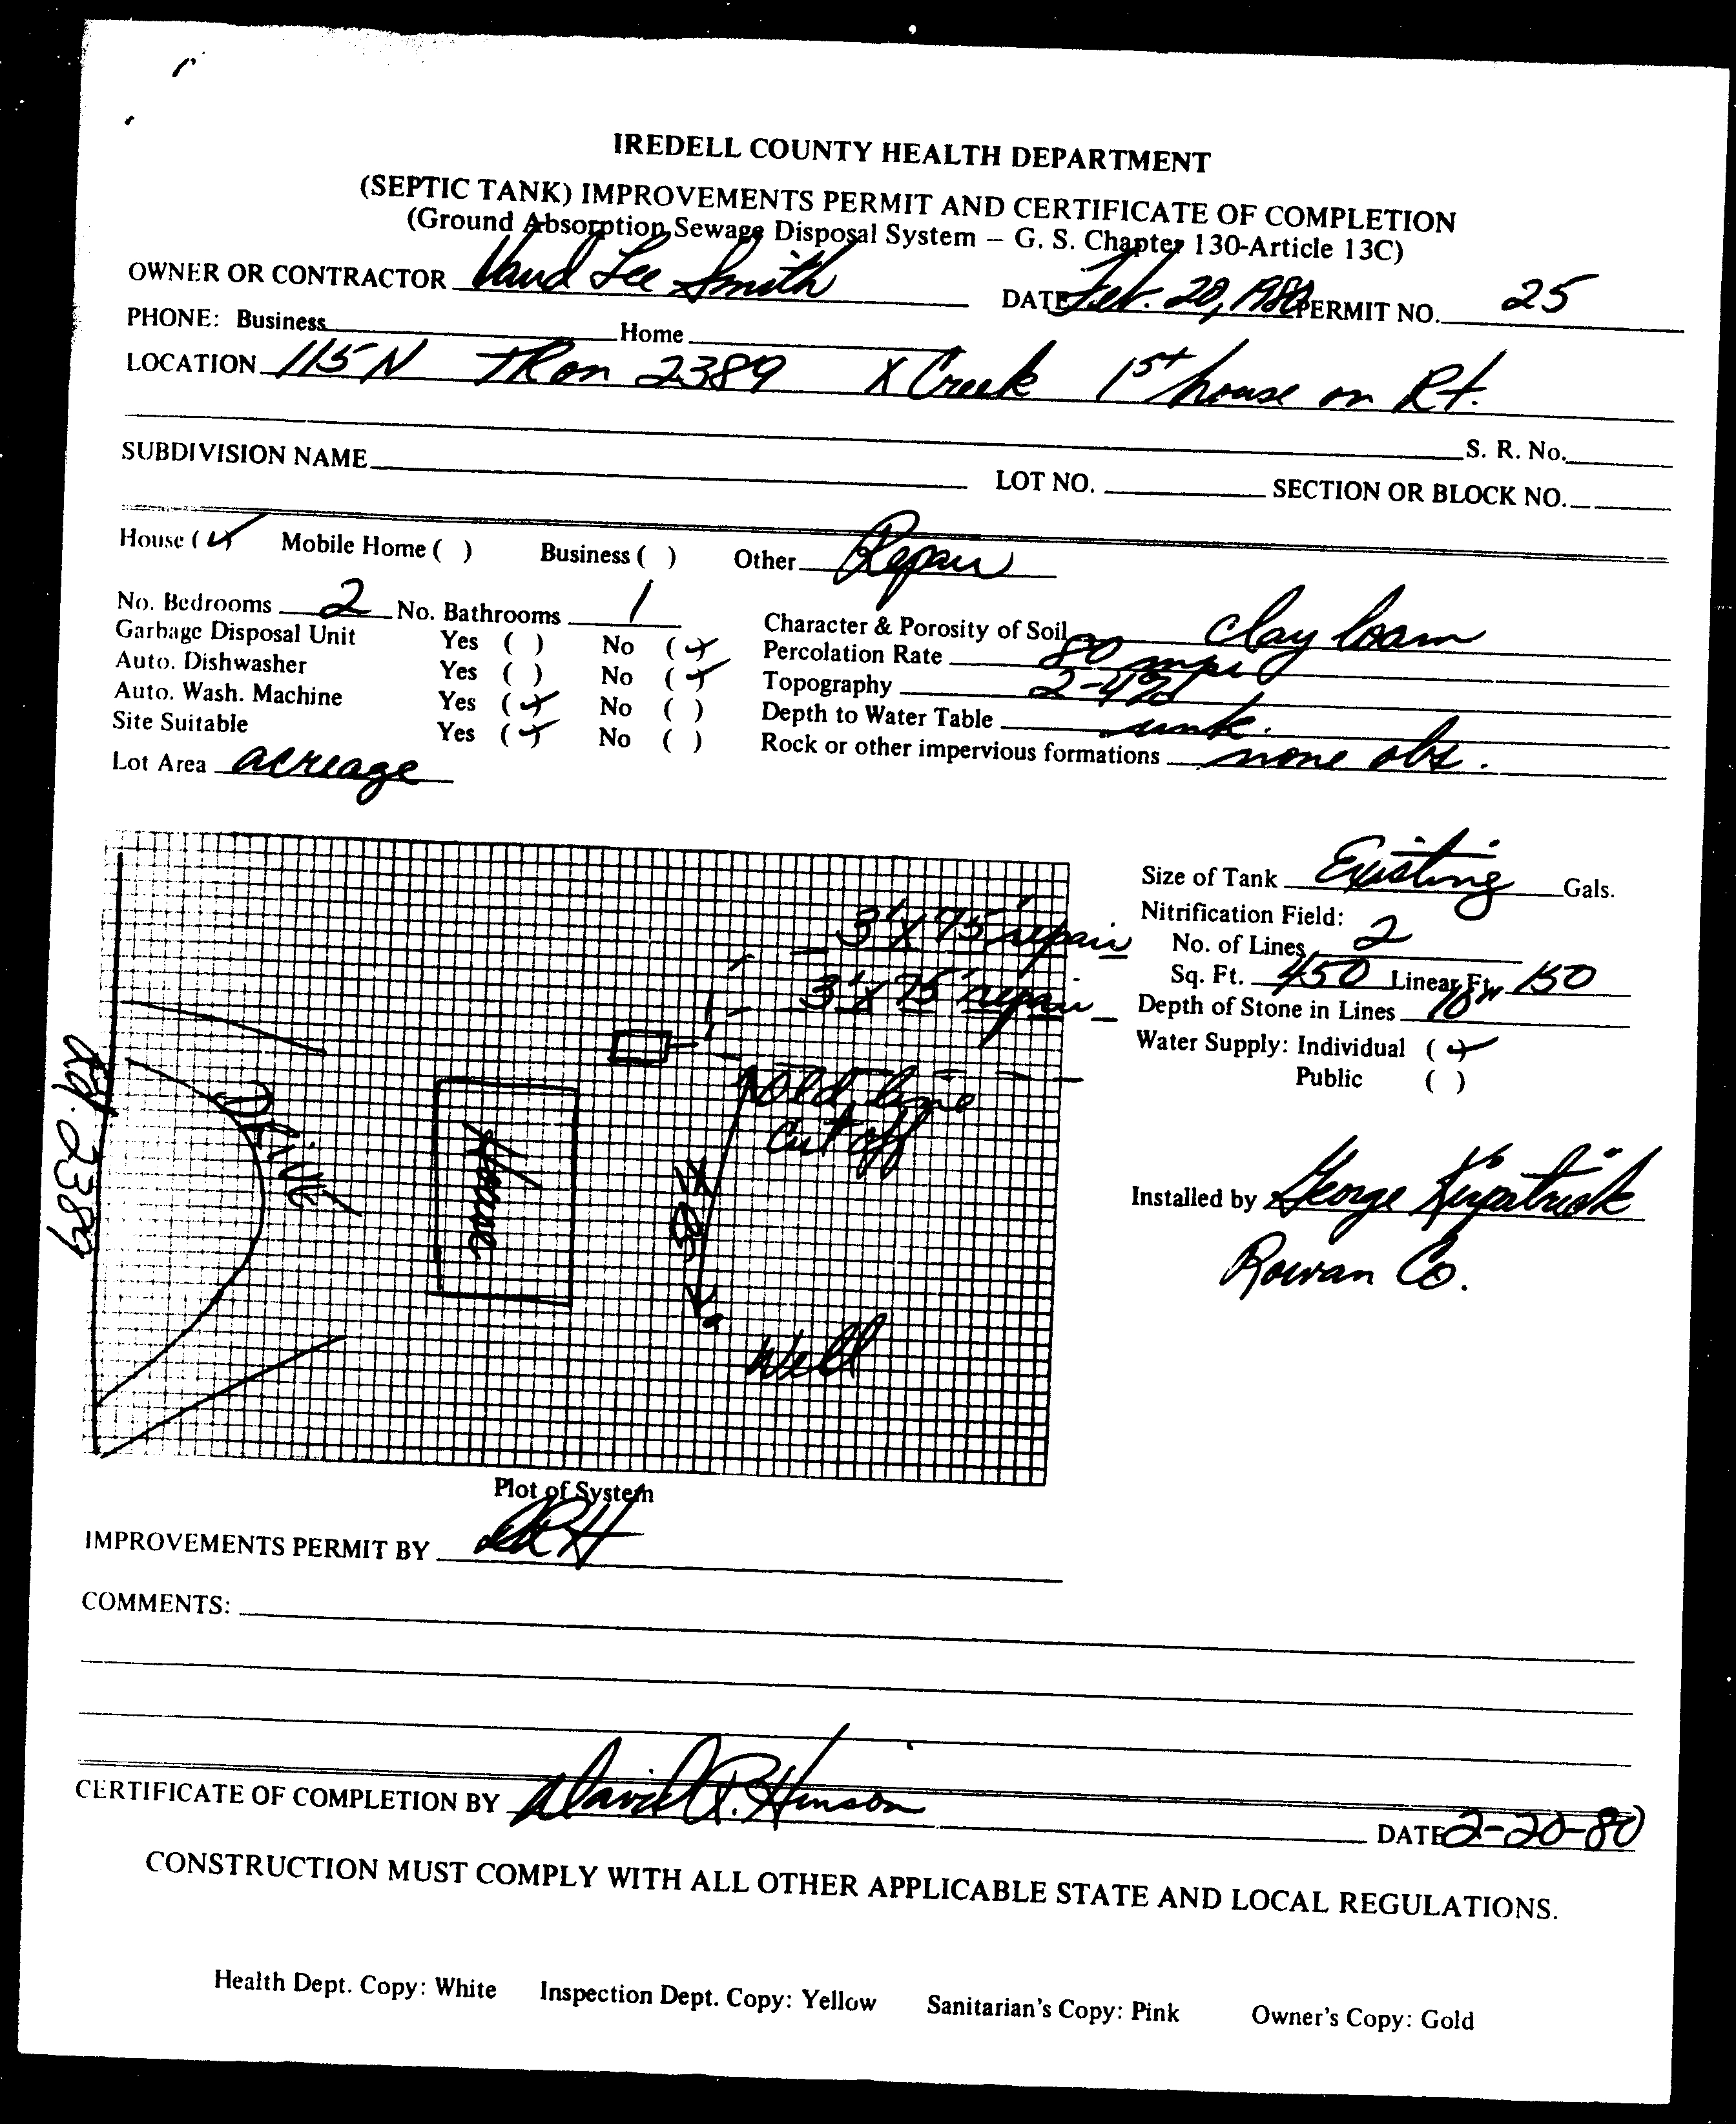 IREDELL COUNTY HEALTH DEPARTMENT
(SEPTIC TANK) IMPROVEMENTS PERMIT AND CERTIFICATE OF COMPLETION
(Ground Absorption Sewage Disposal System – G. S. Chapter 130-Article 13C)
OWNER OR CONTRACTOR Vaud Lee Smith DATE Feb. 20, 1980 PERMIT NO. 25
PHONE: Business Home
LOCATION 115 N TR on 2389 X Creek 1st house on Rt.
S. R. No.
SUBDIVISION NAME LOT NO. SECTION OR BLOCK NO.
House (✓) Mobile Home ( ) Business ( ) Other Repair
No. Bedrooms 2 No. Bathrooms 1
Garbage Disposal Unit Yes ( ) No (✓)
Auto. Dishwasher Yes ( ) No (✓)
Auto. Wash. Machine Yes (✓) No ( )
Site Suitable Yes (✓) No ( )
Lot Area acreage
Character & Porosity of Soil clay loam
Percolation Rate 80 mpi
Topography 2-4%
Depth to Water Table unk.
Rock or other impervious formations none obs.
3' X 75' repair
3' X 75' repair
Old line
Cut off
DRIVE
House
Well
Rd. 2389
Size of Tank Existing Gals.
Nitrification Field:
No. of Lines 2
Sq. Ft. 450 Linear Ft. 150
Depth of Stone in Lines 18"
Water Supply: Individual (✓)
Public ( )
Installed by George Kirpatrick
Rowan Co.
Plot of System
IMPROVEMENTS PERMIT BY DRH
COMMENTS:
CERTIFICATE OF COMPLETION BY David R. Hinson
DATE 2-20-80
CONSTRUCTION MUST COMPLY WITH ALL OTHER APPLICABLE STATE AND LOCAL REGULATIONS.
Health Dept. Copy: White Inspection Dept. Copy: Yellow Sanitarian's Copy: Pink Owner's Copy: Gold